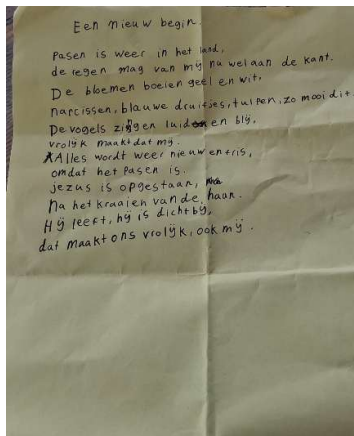 Een nieuw begin.
Pasen is weer in het land,
de regen mag van mij nu wel aan de kant.
De bloemen boeien geel en wit.
narcissen, blauwe druifjes, tulpen, zo mooi dit.
De vogels zingen luid en blij,
vrolijk maakt dat mij.
Alles wordt weer nieuw en fris,
omdat het Pasen is.
jezus is opgestaan,
Na het kraaien van de haan.
Hij leeft, hij is dichtbij,
dat maakt ons vrolijk, ook mij.